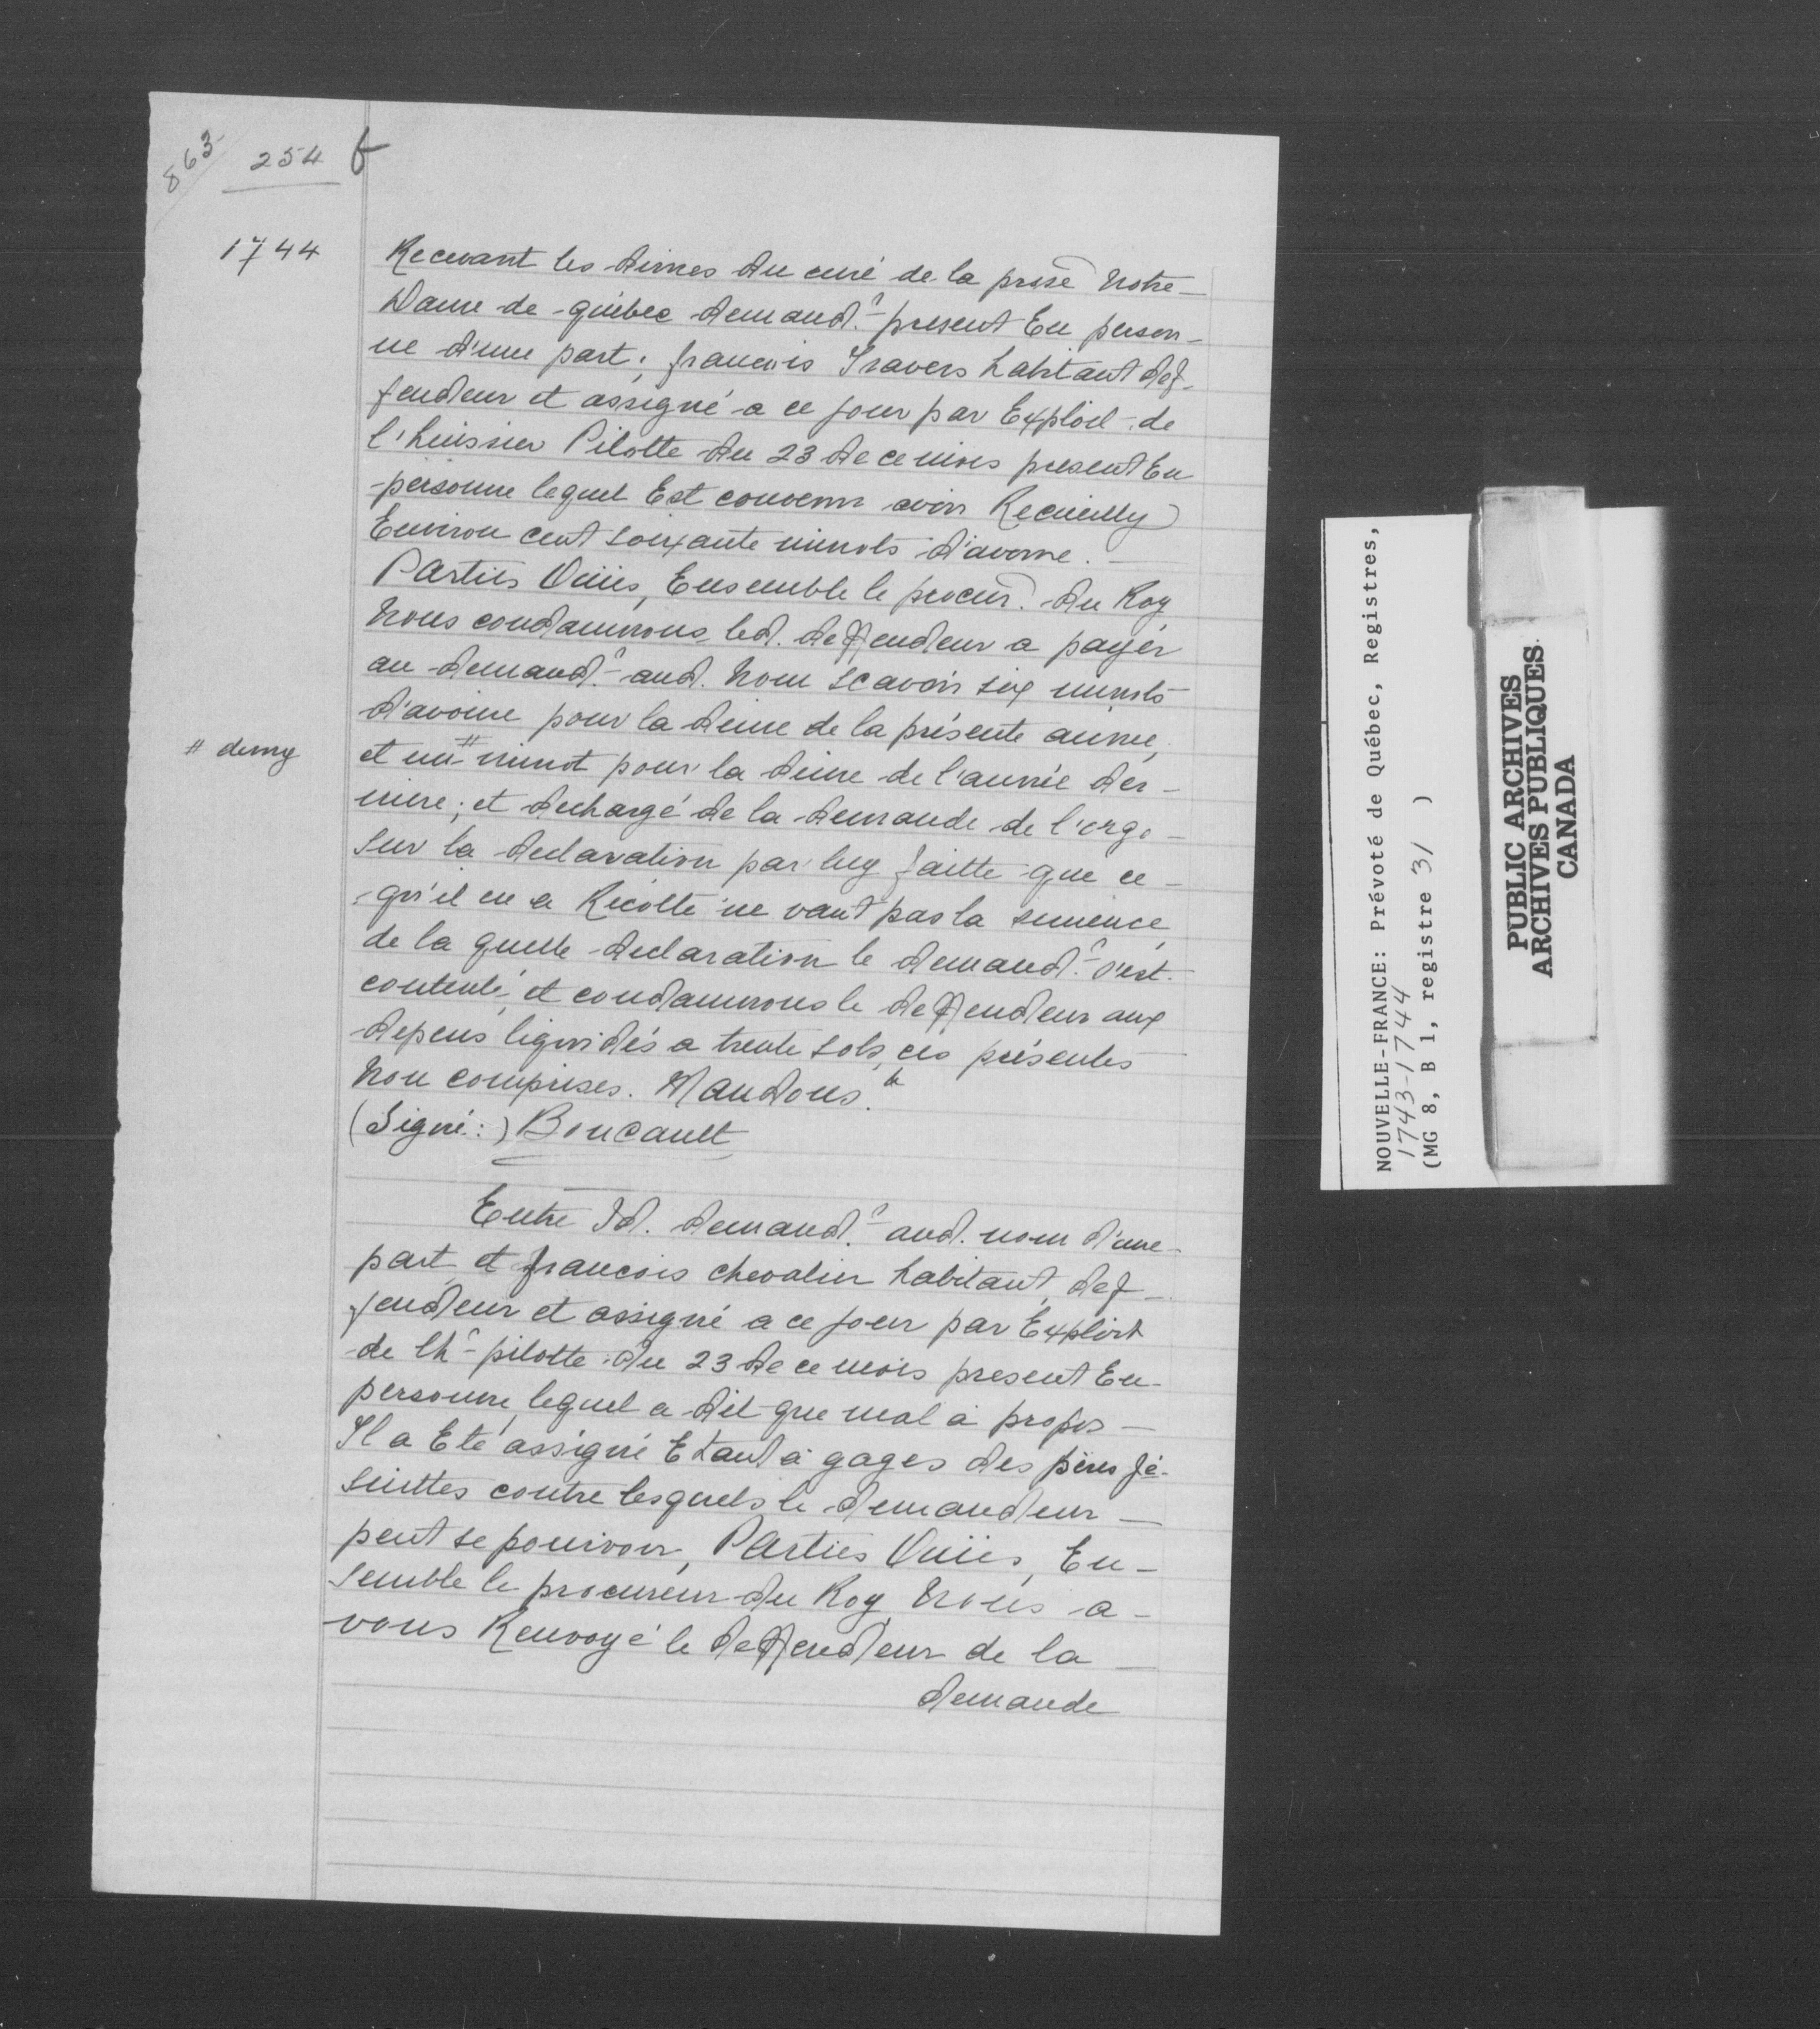 863
254 f
1744
Recevant les dimes du curé de la prsse Notre
Dame de québec demandr present En person-
ne d'une part; francois Travers habitant def-
fendeur et assigné a ce jour par Exploit de
l'huissier Pilotte du 23 de ce mois present En
personne lequel Est convenu avoir Recueilly
Environ cent soixante minots d'avoine.
Parties Ouïes, Ensemble le procurr du Roy
Nous condamnons led. deffendeur a payer
au demandr aud. Nom scavoir six minots
d'avoine pour la dime de la présente année,
# demy
et un # minot pour la dime de l'année der-
niere; et dechargé de la demande de l'orge
sur la declaration par luy faitte que ce
qu'il en a Récolté ne vaut pas la semence,
de la quelle declaration le demandr s'est
contenté, et condamnons le deffendeur aux
depens liquidés a trente sols, ces présentes
Non comprises. Mandons. &
(Signé:) Boucault
Entre Id. demandr aud. nom d'une
part, et francois chevalier habitant, def-
fendeur et assigné a ce jour par Exploit
de lhr pilotte du 23 de ce mois present En
personne, lequel a dit que mal à propos
Il a Eté assigné Etant à gages des pères Jé-
suittes contre lesquels le demandeur
peut se pourvoir, Parties Ouïes, En-
semble le procureur du Roy, Nous a-
vons Renvoyé le deffendeur de la
demande
NOUVELLE-FRANCE: Prévoté de Québec, Registres,
1743-1744
(MG 8, B 1, registre 31 )
PUBLIC ARCHIVES
ARCHIVES PUBLIQUES
CANADA